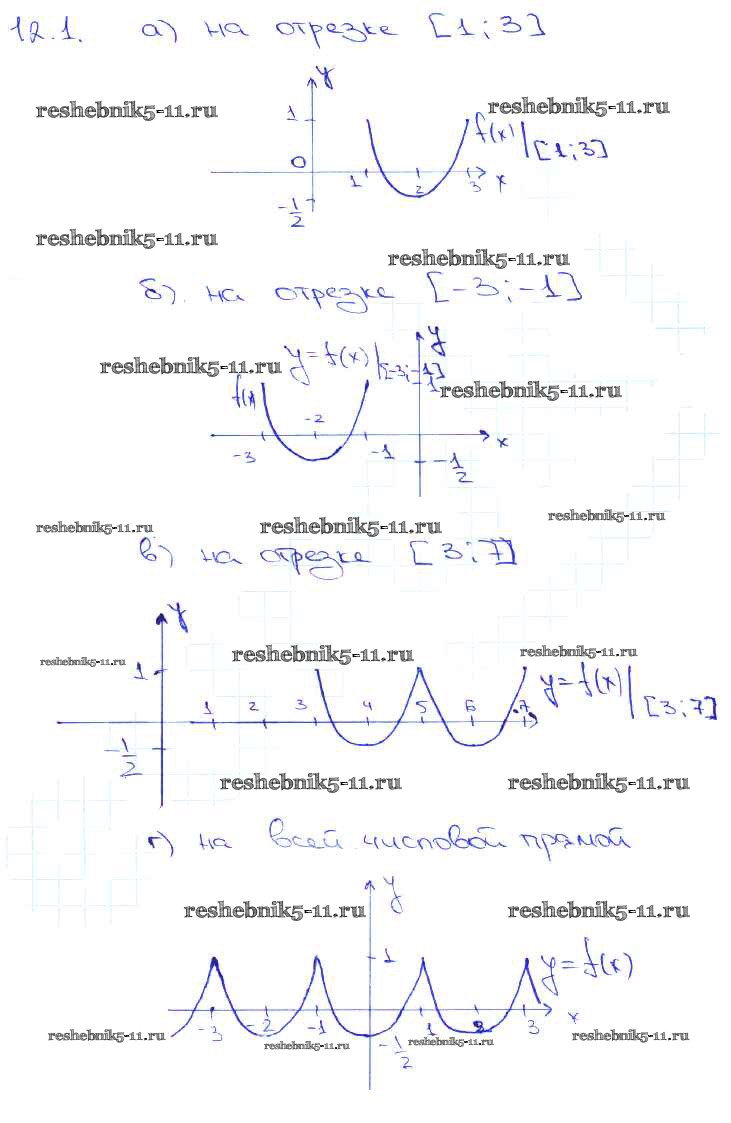 12.1. а) на отрезке [1; 3]
y
reshebnik5-11.ru reshebnik5-11.ru
1 f(x)|[1; 3]
0
1 2 3 x
-1/2
reshebnik5-11.ru
reshebnik5-11.ru
б) на отрезке [-3; -1]
y
reshebnik5-11.ru y=f(x)|[-3; -1]
f(x) 1 reshebnik5-11.ru
-2
-3 -1 x
-1/2
reshebnik5-11.ru reshebnik5-11.ru reshebnik5-11.ru
в) на отрезке [3; 7]
y
reshebnik5-11.ru reshebnik5-11.ru reshebnik5-11.ru
1 y=f(x)|[3; 7]
1 2 3 4 5 6 7
-1/2
reshebnik5-11.ru reshebnik5-11.ru
г) на всей числовой прямой
y
reshebnik5-11.ru reshebnik5-11.ru
1 y=f(x)
-3 -2 -1 1 2 3 x
reshebnik5-11.ru reshebnik5-11.ru -1/2 reshebnik5-11.ru reshebnik5-11.ru